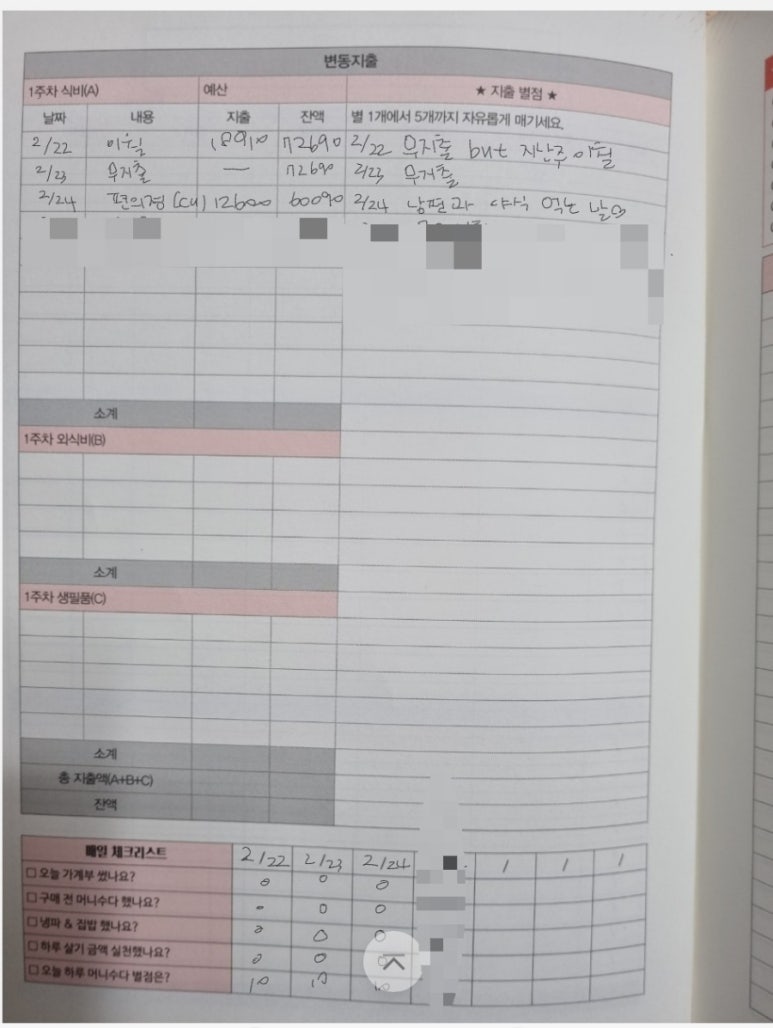 변동지출
1주차 식비(A) 예산 ★ 지출 별점 ★
날짜 내용 지출 잔액 별 1개에서 5개까지 자유롭게 매기세요.
2/22 이월 18910 72690 2/22 무지출 but 지난주 이월
2/23 무지출 — 72690 2/23 무지출
2/24 편의점 (cu) 12600 60090 2/24 남편과 야식 먹는 날
소계
1주차 외식비(B)
소계
1주차 생필품(C)
소계
총 지출액(A+B+C)
잔액
매일 체크리스트 2/22 2/23 2/24 / / /
□ 오늘 가계부 썼나요? 0 0 0
□ 구매 전 머니수다 했나요? 0 0 0
□ 냉파 & 집밥 했나요? 0 0 0
□ 하루 살기 금액 실천했나요? 0 0
□ 오늘 하루 머니수다 별점은? 10 10 10